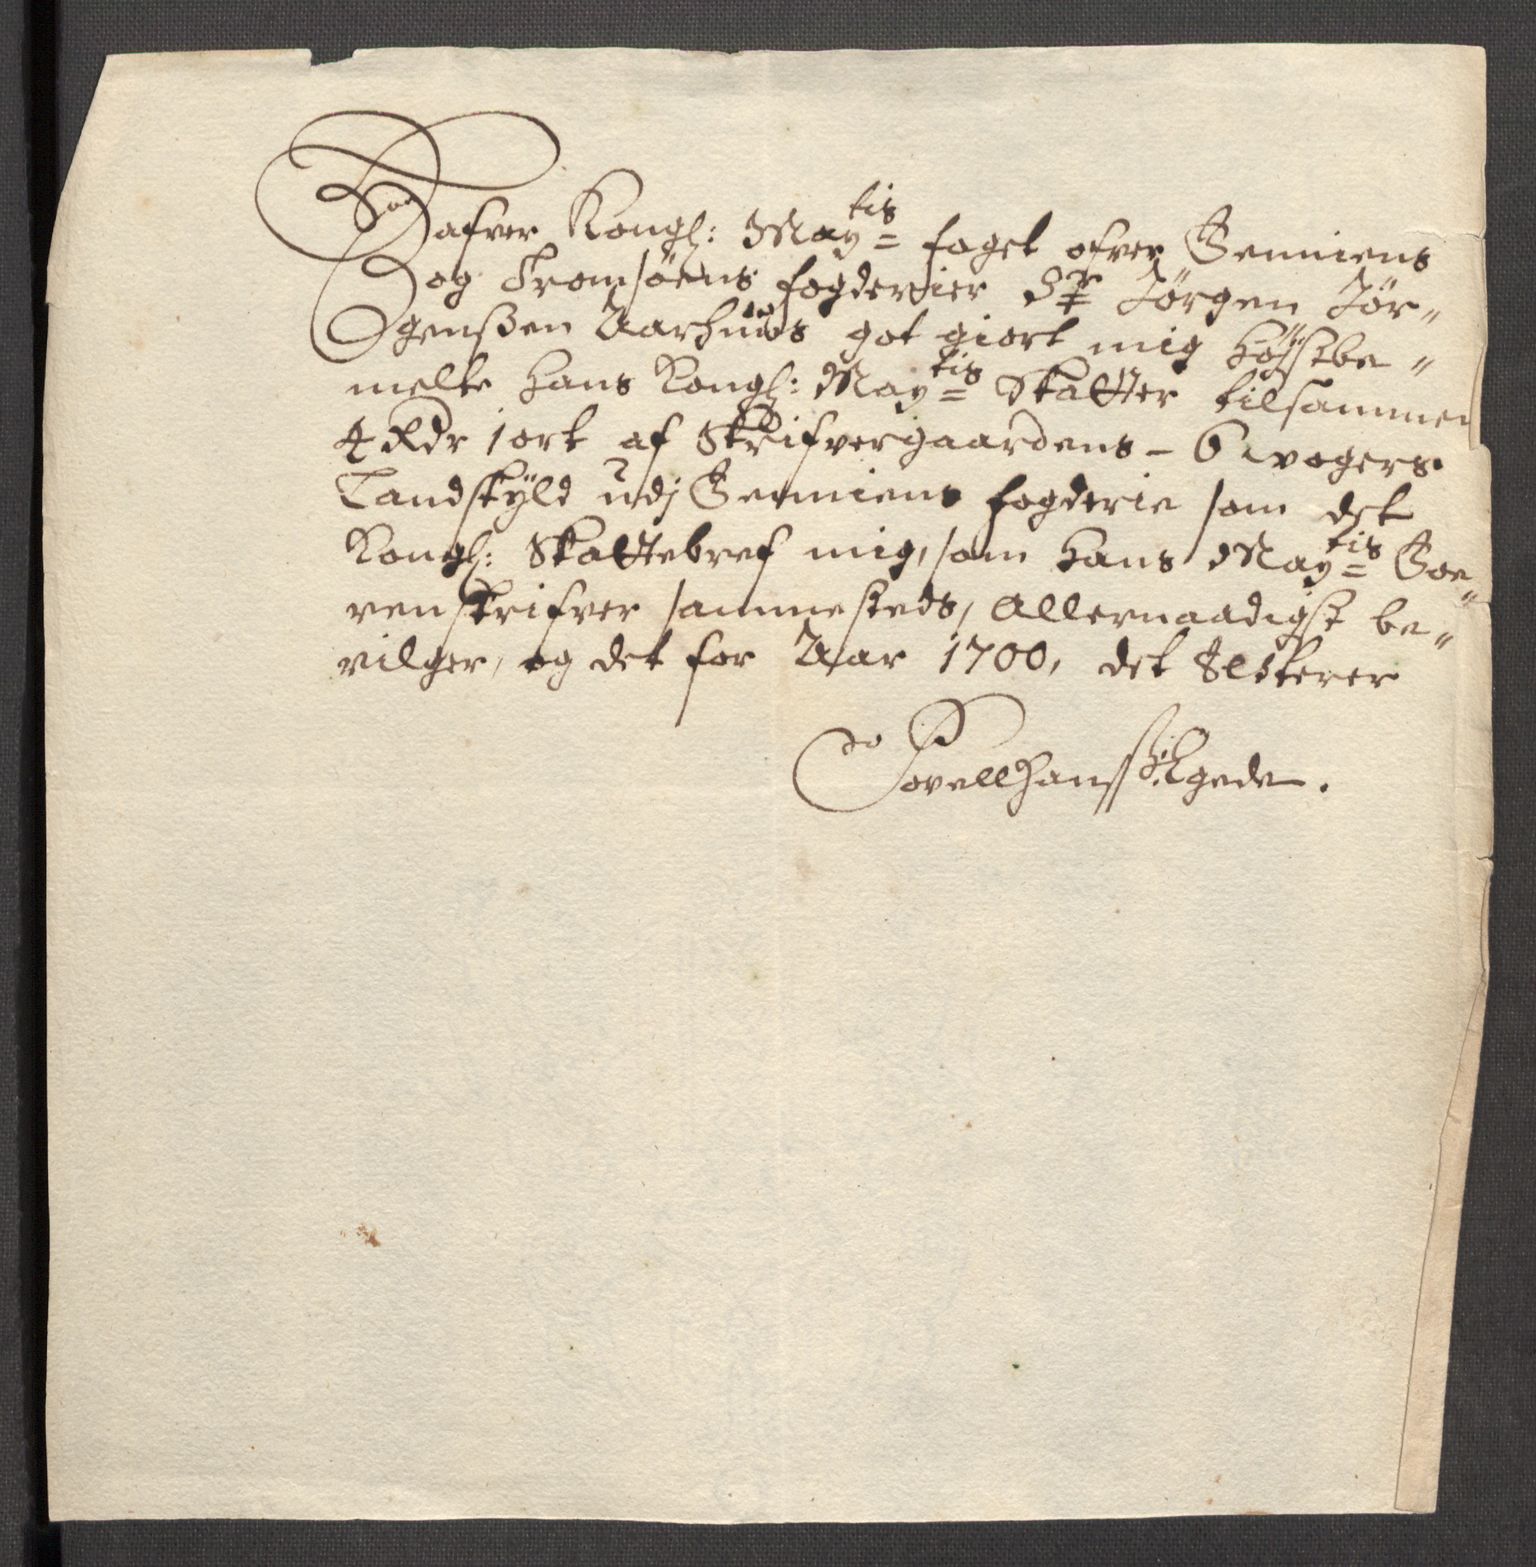 Hafver Kongl: May^tis foget ofver Senniens
og Tromsöens fogderier Sr Jörgen Jör„
gensßen Aarhuus got giort mig höystbe„
melte hans Kongl: May^tis Skatter tilsammen
4 Rdr 1 ort af Skrifvergaardens - 6 wogers
Landskÿld udj Senniens fogderie som det
Kongl: Skattebref mig, som hans May^tis Soe„
renskrifver sammesteds, Allernaadigst be„
vilger, og det for Aar 1700, det Atesterer
Povell Hansß: Egede.